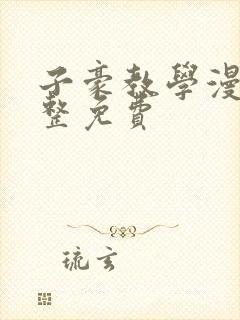 子豪教學漫
整免費
琉玄